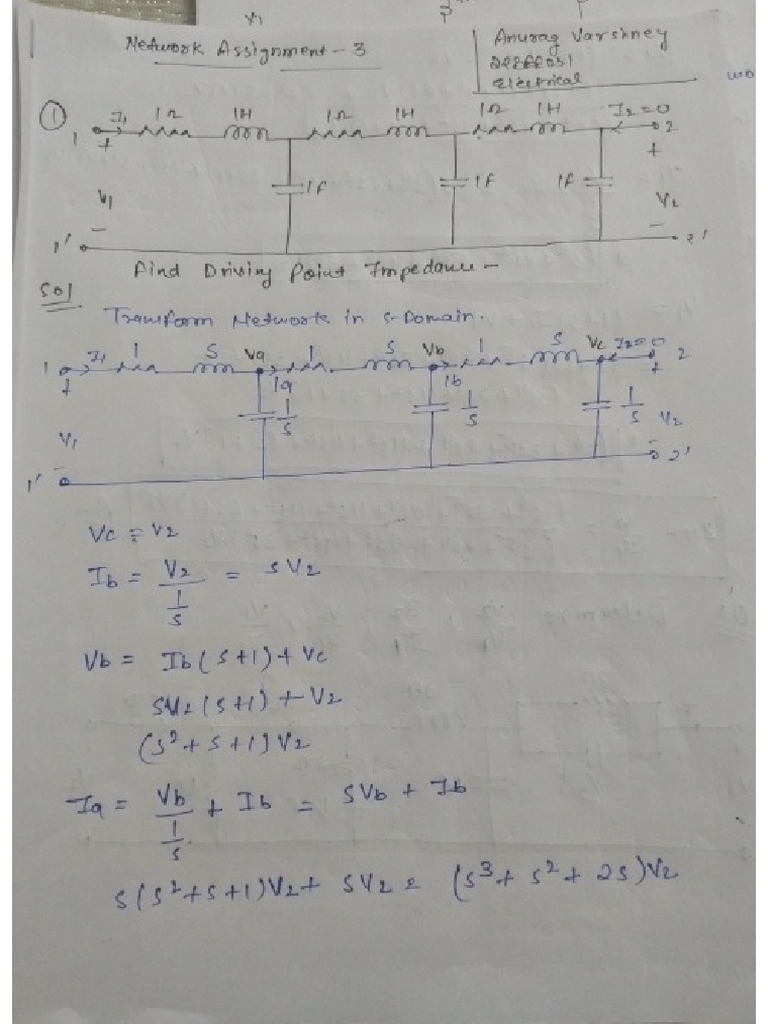 Network Assignment - 3
Anurag Varshney
Electrical
①
1 I1 1Ω 1H 1Ω 1H 1Ω 1H I2=0 2
+ +
V1 1F 1F 1F V2
- -
1' 2'
Find Driving Point Impedance -
Sol
Transform Network in s-Domain.
1 I1 1 S Va 1 S Vb 1 S Vc I2=0 2
+ Ia Ib +
V1 1/S 1/S 1/S V2
- -
1' 2'
Vc = V2
Ib = V2/(1/S) = SV2
Vb = Ib(S+1) + Vc
SV2(S+1) + V2
(S²+S+1)V2
Ia = Vb/(1/S) + Ib = SVb + Ib
S(S²+S+1)V2 + SV2 = (S³+S²+2S)V2